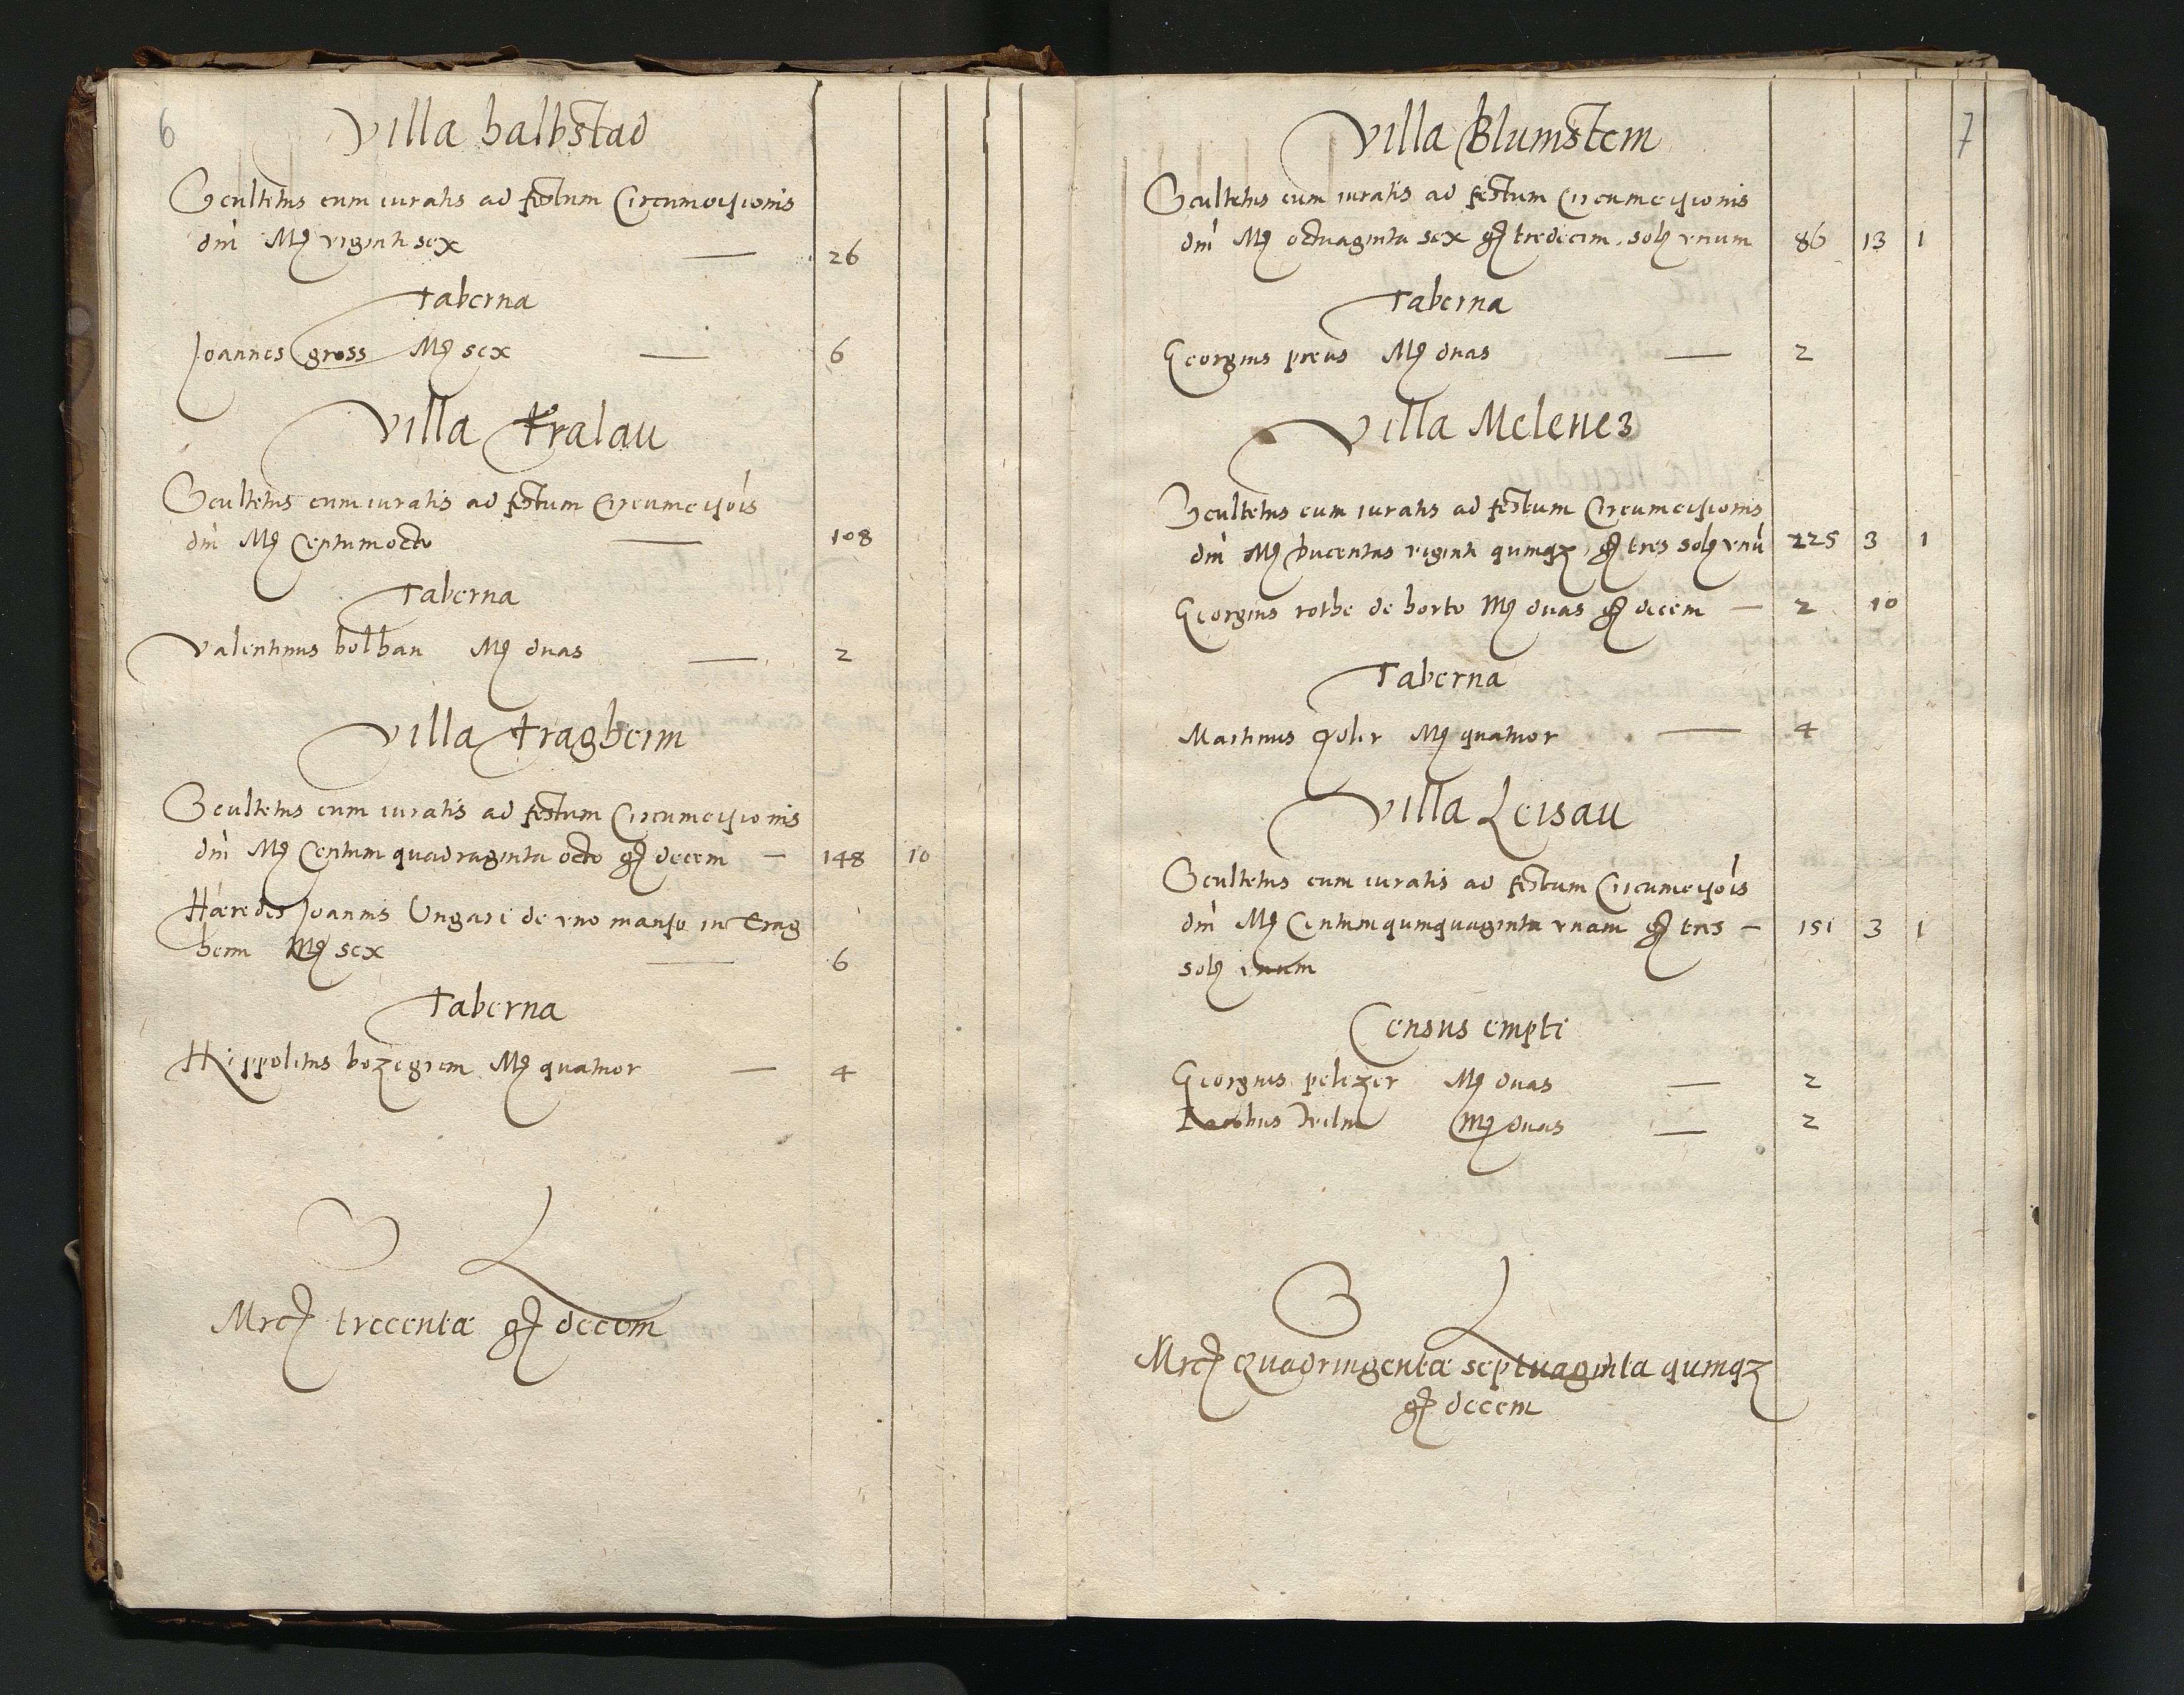 6
Villa halbstad
Scultetus cum iuratis ad festum Circumcisionis
dni Mg viginti sex — 26
Taberna
Joannes gross Mg sex — 6
Villa Tralau
Scultetus cum iuratis ad festum Circumcisiois
dni Mg Centum octo — 108
Taberna
Valentinus holhan Mg duas — 2
Villa tragheim
Scultetus cum iuratis ad festum Circumcisionis
dni Mg Centum quadraginta octo g decem — 148 10
Hæredes Joannis Ungari de vno manso in Trag
heim Mg sex — 6
Taberna
Hippolitus Mg quatuor — 4
S L
Mrc trecentæ g decem
7
Villa Blumstem
Scultetus cum iuratis ad festum Circumcisionis
dni Mg octuaginta sex g tredecim solz vnum 86 13 1
Taberna
Georgius preus Mg duas — 2
Villa Melenez
Scultetus cum iuratis ad festum Circumcisionis
dni Mg ducentas viginti quinqz g tres solz vnu 225 3 1
Georgius rothe de horto Mg duas g decem — 2 10
Taberna
Martinus Mg quatuor — 4
Villa Leisau
Scultetus cum iuratis ad festum Circumcisiois
dni Mg Centum quinquaginta vnam g tres — 151 3 1
solz vnum
Census empti
Georgius pelczer Mg duas — 2
Jacobus Mg duas — 2
S L
Mrc Quadringentæ septuaginta quinqz
g decem